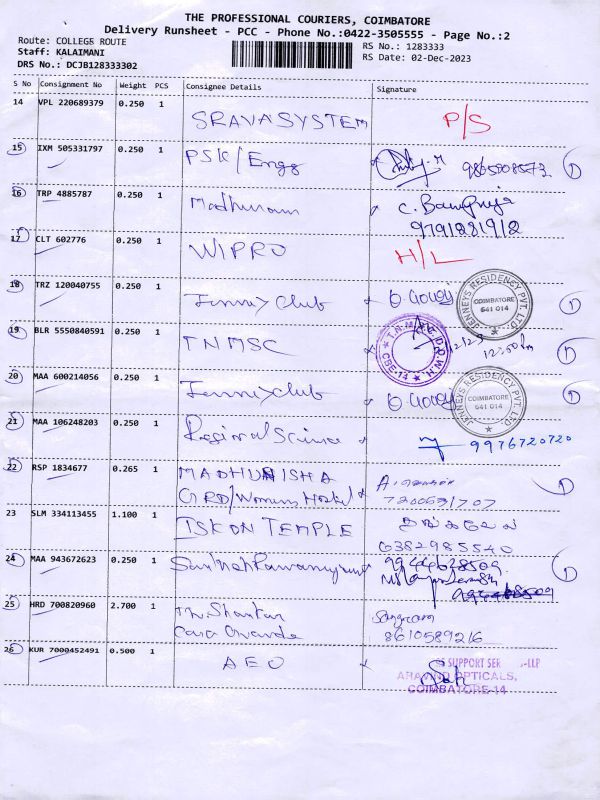 THE PROFESSIONAL COURIERS, COIMBATORE
Delivery Runsheet - PCC - Phone No.:0422-3505555 - Page No.:2
Route: COLLEGE ROUTE
Staff: KALAIMANI
DRS No.: DCJB128333302
RS No.: 1283333
RS Date: 02-Dec-2023
S No Consignment No Weight PCS Consignee Details Signature
14 VPL 220689379 0.250 1 SRAVASYSTEM P/S
15 IXM 505331797 0.250 1 PSK/Engg D
16 TRP 4885787 0.250 1 Madhuram
9791281912
17 CLT 602776 0.250 1 WIPRO H/L
18 TRZ 120040755 0.250 1 Jennyclub JENNEYS RESIDENCY PVT. LTD. COIMBATORE 641 014 D
19 BLR 5550840591 0.250 1 TNMSC CBE-14 D
20 MAA 600214056 0.250 1 Jennyclub JENNEYS RESIDENCY PVT. LTD. COIMBATORE 641 014 D
21 MAA 106248203 0.250 1 Regional Science 9976720720
22 RSP 1834677 0.265 1 MADHUNISHA
GRD/Womens Hostel D
23 SLM 334113455 1.100 1 ISKON TEMPLE
6382985540
24 MAA 943672623 0.250 1 D
25 HRD 700820960 2.700 1
8610589216
26 KUR 7000452491 0.500 1 AEO SUPPORT SER -LLP
ARAVIND OPTICALS,
COIMBATORE-14